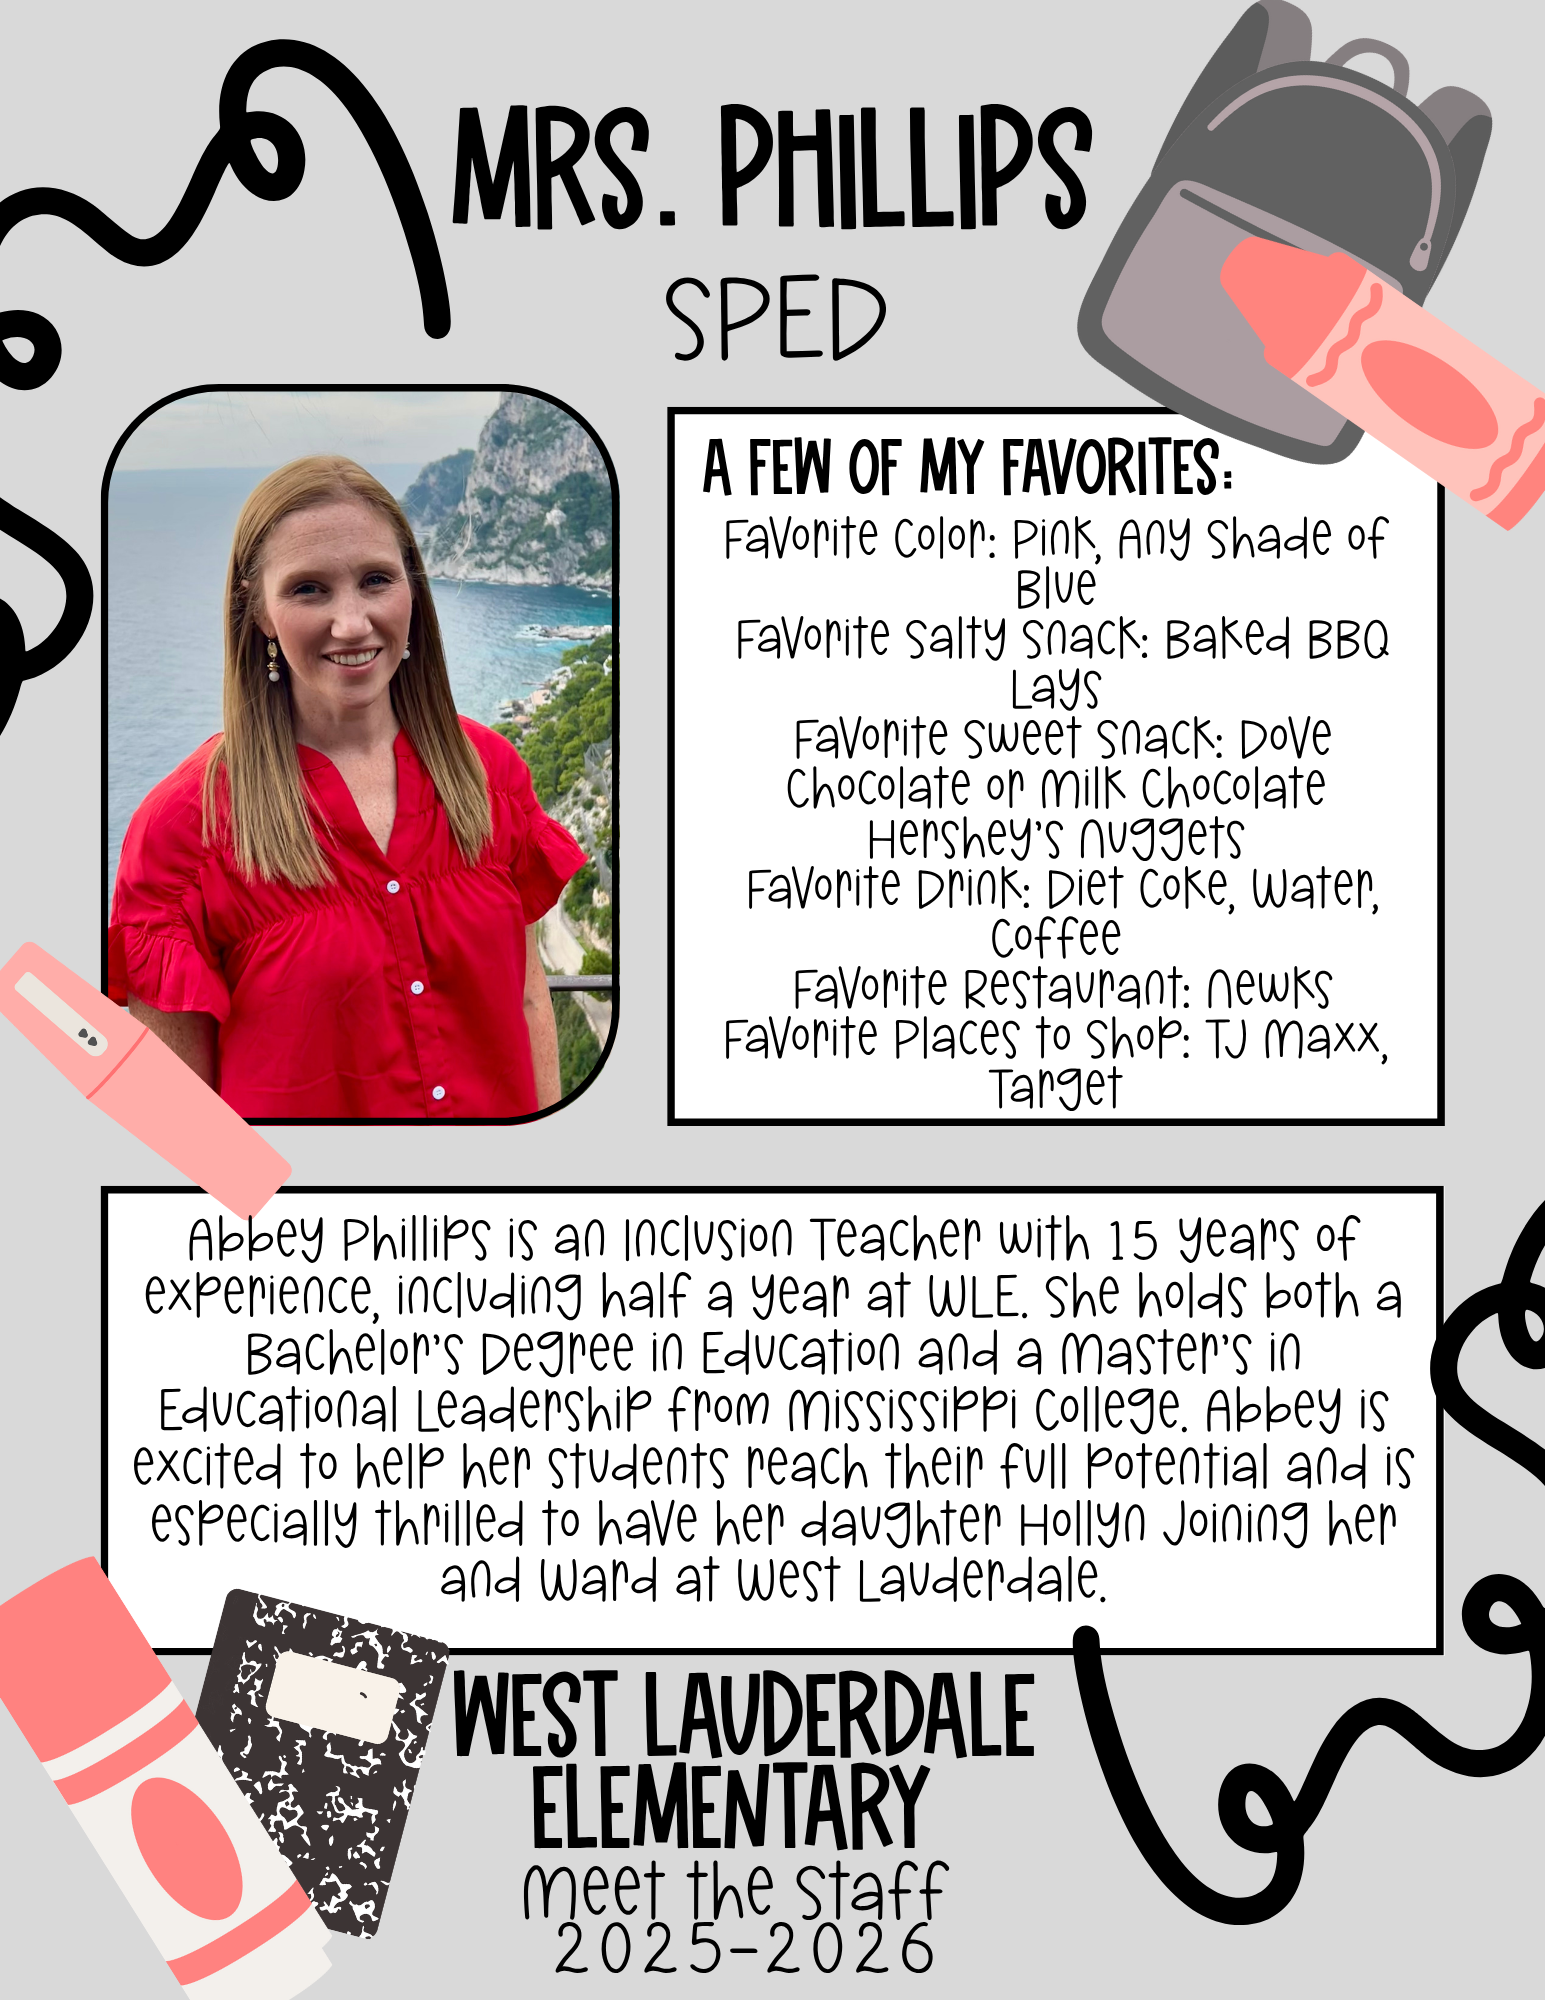 MRS. PHILLIPS
SPED
A FEW OF MY FAVORITES:
Favorite Color: Pink, Any Shade of
Blue
Favorite Salty Snack: Baked BBQ
Lays
Favorite Sweet Snack: Dove
Chocolate or Milk Chocolate
Hershey's Nuggets
Favorite Drink: Diet Coke, Water,
Coffee
Favorite Restaurant: Newks
Favorite Places to Shop: TJ Maxx,
Target
Abbey Phillips is an Inclusion Teacher with 15 years of
experience, including half a year at WLE. She holds both a
Bachelor's Degree in Education and a Master's in
Educational Leadership from Mississippi College. Abbey is
excited to help her students reach their full potential and is
especially thrilled to have her daughter Hollyn joining her
and Ward at West Lauderdale.
WEST LAUDERDALE
ELEMENTARY
Meet the Staff
2025-2026